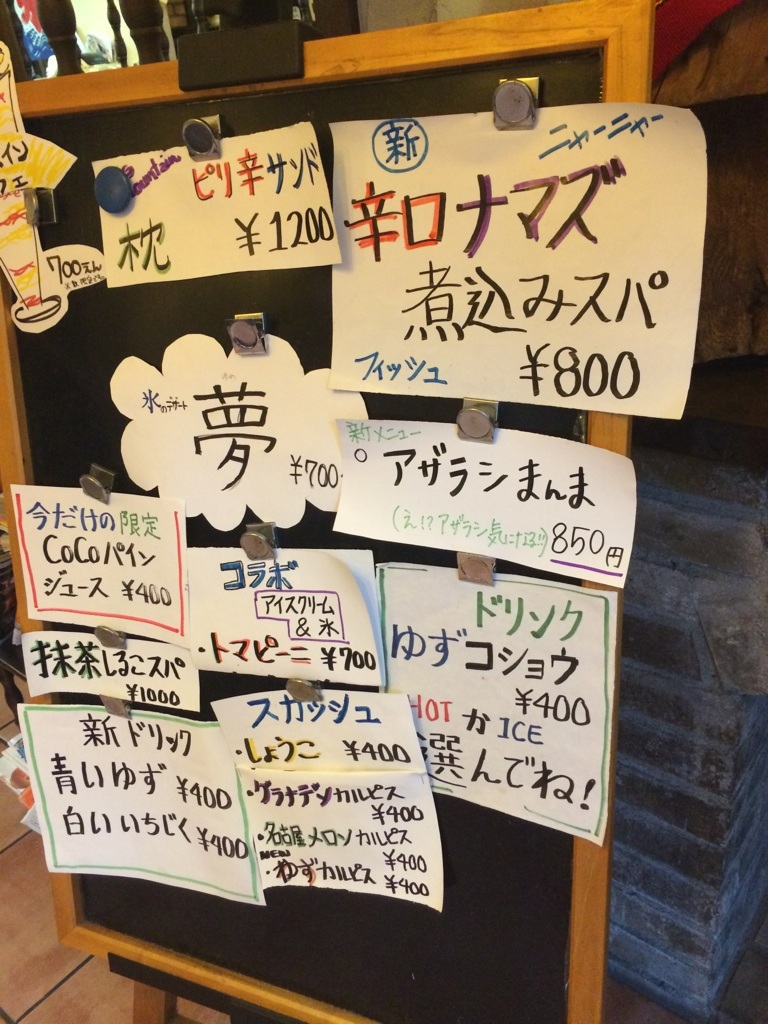 イン
フェ
700えん
Mountain
ピリ辛サンド
枕 ¥1200
新 ニャーニャー
辛口ナマズ
煮込みスパ
フィッシュ ¥800
氷のデザート
夢
¥700
新メニュー
アザラシまんま
(え!?アザラシ気になる!!) 850円
今だけの限定
CoCoパイン
ジュース ¥400
コラボ
アイスクリーム
& 氷
・トマピーニ ¥700
抹茶しるこスパ
¥1000
ドリンク
ゆずコショウ
¥400
HOT か ICE
選んでね!
新ドリンク
青いゆず ¥400
白いいちじく ¥400
スカッシュ
・しょうこ ¥400
・グラナデンカルピス
¥400
・名古屋メロンカルピス
¥400
NEW
・ゆずカルピス ¥400